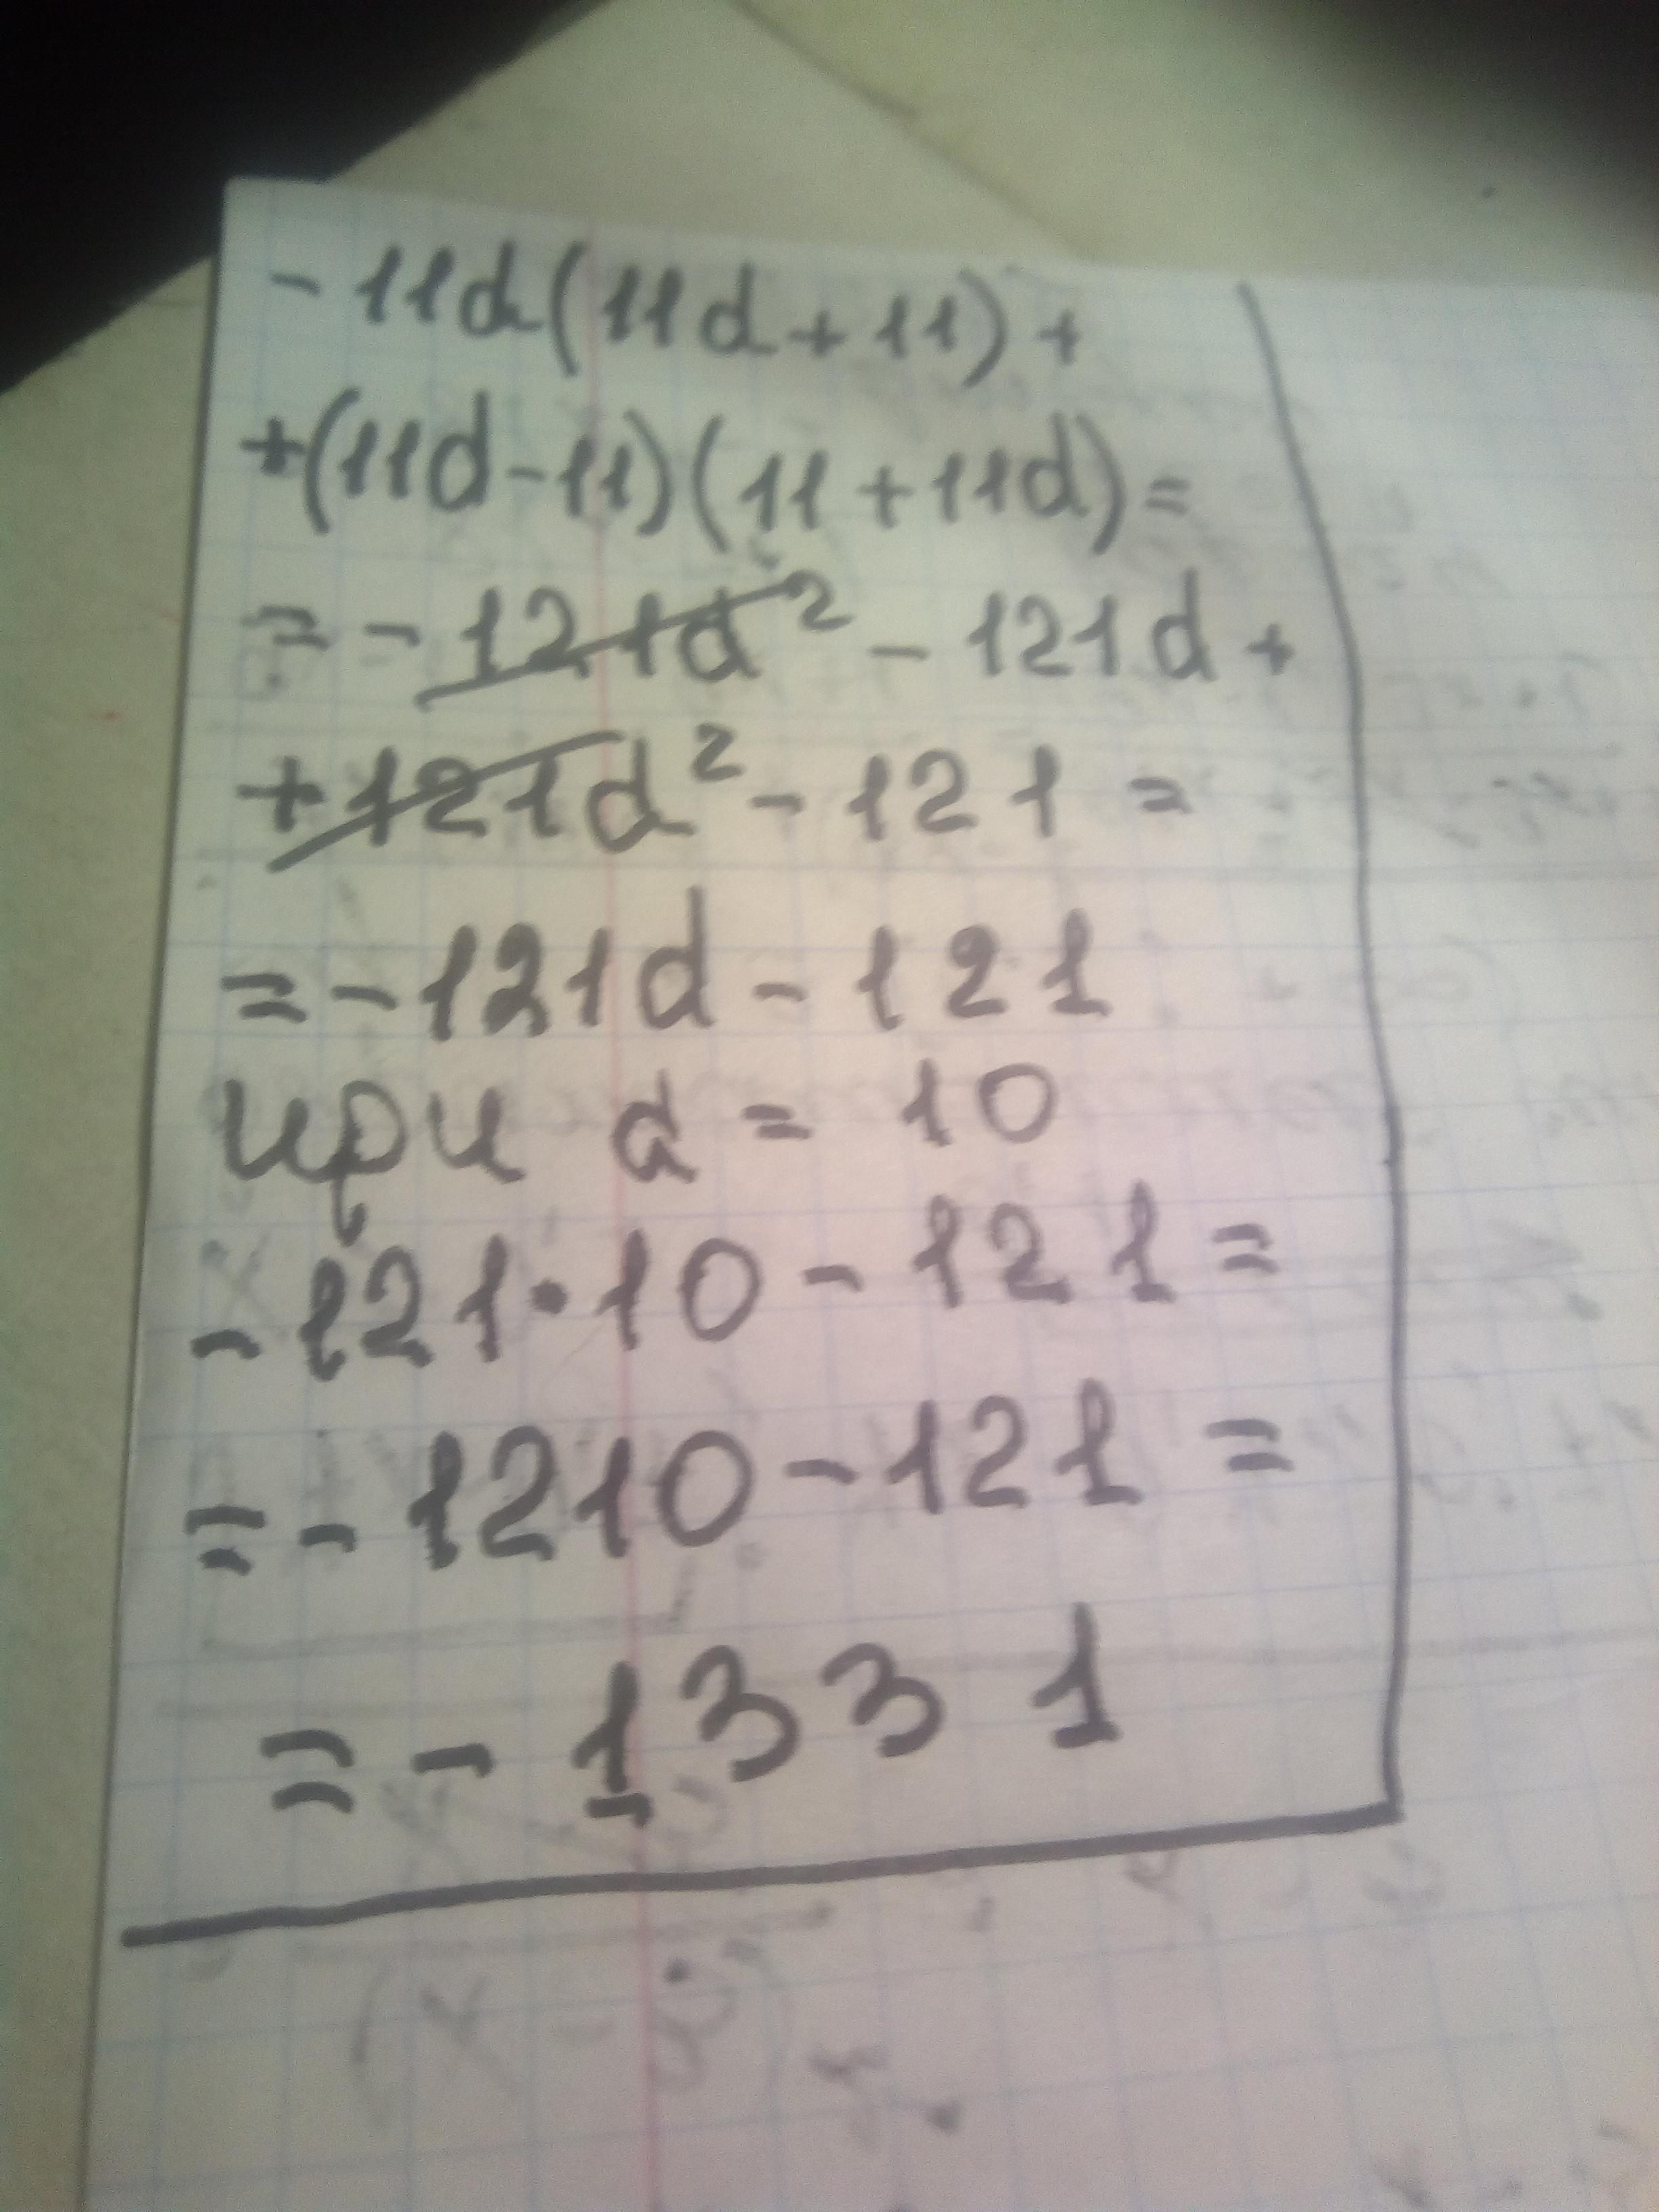 - 11d(11d+11)+
+(11d-11)(11+11d)=
= - 121d² - 121d +
+ 121d² - 121 =
= - 121d - 121
при d = 10
- 121 · 10 - 121 =
= - 1210 - 121 =
= - 1331